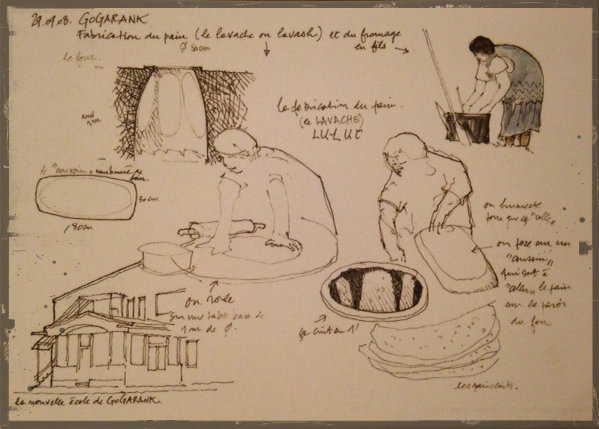 29.09.08. GOGARANK
Fabrication du pain (le lavache ou lavash) et du fromage
en fils
Ø 50cm
le four.
la fabrication du pain.
(le LAVACHE)
ԼԱՎԱՇ
le "coussin" rembourré de
30cm
80cm
on humecte
pour que ça "colle"
on pose sur un
"coussin"
qui sert à
"coller" le pain
sur la paroi
du four
on roule
sur une table basse de
1m de Ø.
ça cuit en 1'
les pains cuits.
la nouvelle école de GOGARANK.